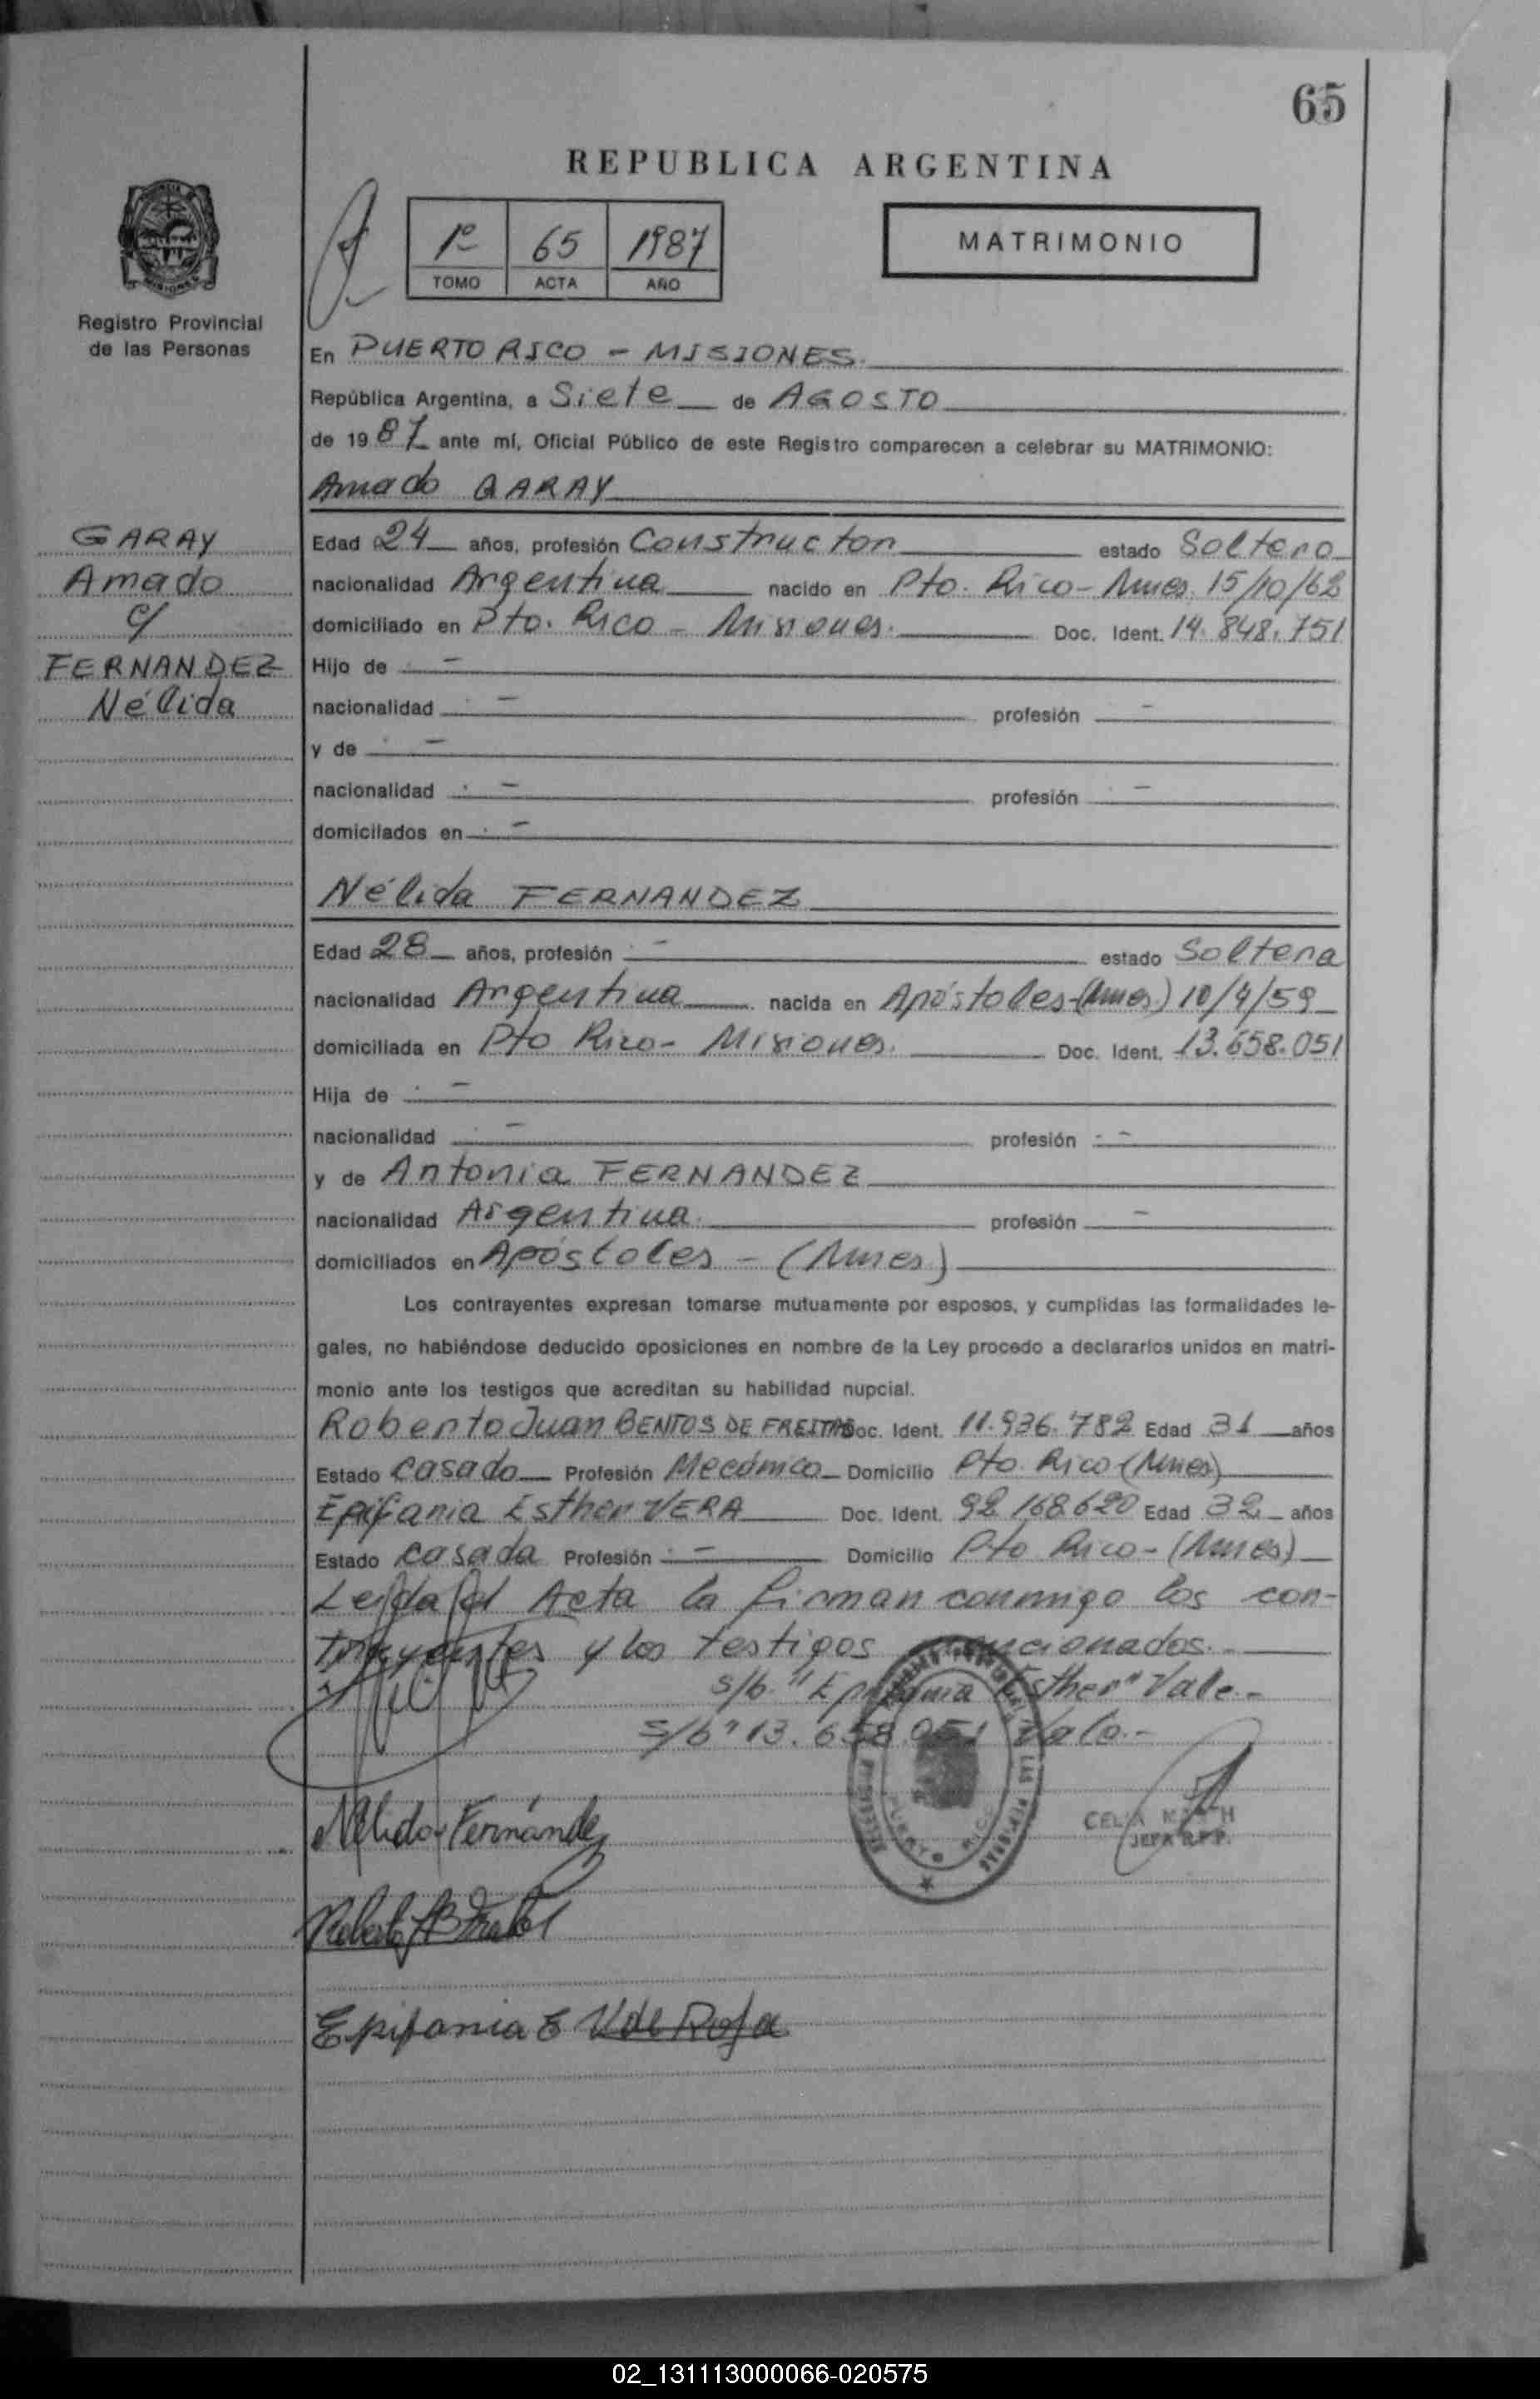 65
REPUBLICA ARGENTINA
1º 65 1987
TOMO ACTA AÑO
MATRIMONIO
Registro Provincial
de las Personas
En PUERTO RICO - MISIONES.
República Argentina, a Siete de AGOSTO
de 1987 ante mí, Oficial Público de este Registro comparecen a celebrar su MATRIMONIO:
Amado GARAY
GARAY
Amado
c/
FERNANDEZ
Nélida
Edad 24 años, profesión Constructor estado Soltero
nacionalidad Argentina nacido en Pto. Rico - Mnes. 15/10/62
domiciliado en Pto. Rico - Misiones. Doc. Ident. 14.848.751
Hijo de -
nacionalidad - profesión -
y de -
nacionalidad - profesión -
domicilados en -
Nélida FERNANDEZ
Edad 28 años, profesión - estado Soltera
nacionalidad Argentina nacida en Apóstoles-(Mnes.) 10/4/59
domiciliada en Pto Rico- Misiones. Doc. Ident. 13.658.051
Hija de -
nacionalidad - profesión -
y de Antonia FERNANDEZ
nacionalidad Argentina. profesión -
domiciliados en Apóstoles - (Mnes)
Los contrayentes expresan tomarse mutuamente por esposos, y cumplidas las formalidades le-
gales, no habiéndose deducido oposiciones en nombre de la Ley procedo a declararlos unidos en matri-
monio ante los testigos que acreditan su habilidad nupcial.
Roberto Juan BENTOS DE FREITAS Doc. Ident. 11.936.782 Edad 31 años
Estado Casado Profesión Mecánico Domicilio Pto. Rico (Mnes)
Epifania Esther VERA Doc. Ident. 92.168.620 Edad 32 años
Estado Casada Profesión - Domicilio Pto Rico - (Mnes)
Leída el Acta la firman conmigo los con-
trayentes y los testigos mencionados.-
s/b "Epifania Esther" Vale.-
s/b "13.658.051 Vale.-
Nélida Fernández
CELIA
JEFA R.P.P.
PUERTO RICO
Epifania E V de Roja
02_131113000066-020575